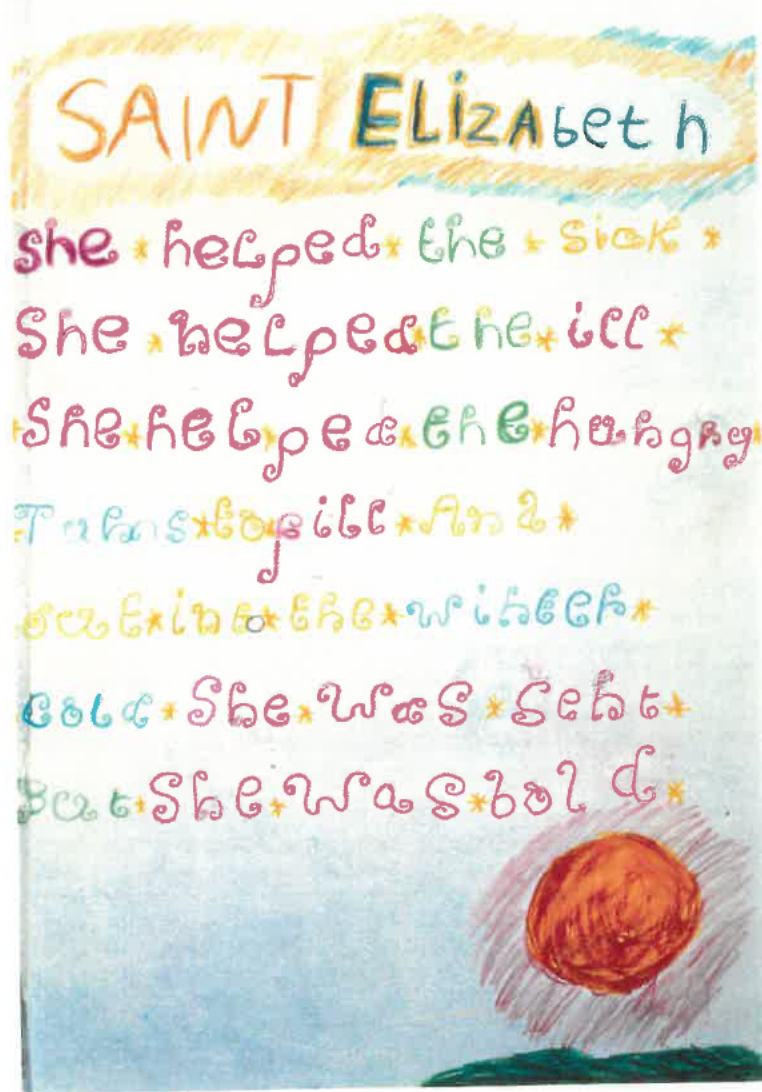 SAINT ELiZAbeth
she helped the sick
She helped the ill
She helped the hungry
Tums to fill And
out into the winter
cold She Was Sent
But She Was bold